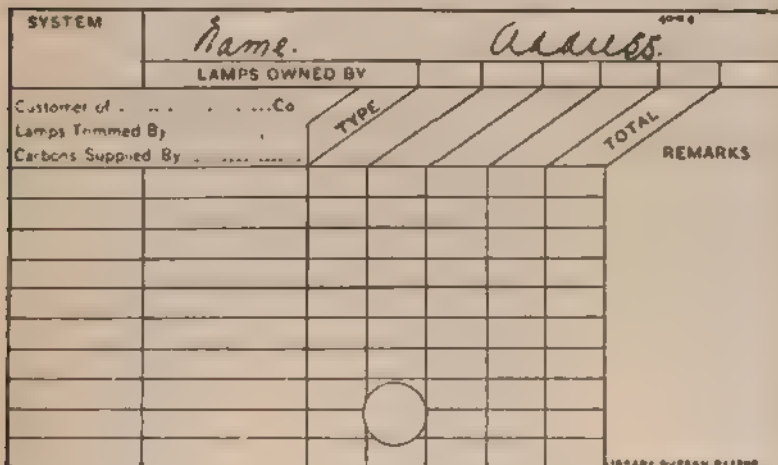 SYSTEM
Name. Address.
LAMPS OWNED BY
Customer of . . . . . . . . Co
Lamps Trimmed By
Carbons Supplied By . . . . . . . .
TYPE
TOTAL
REMARKS